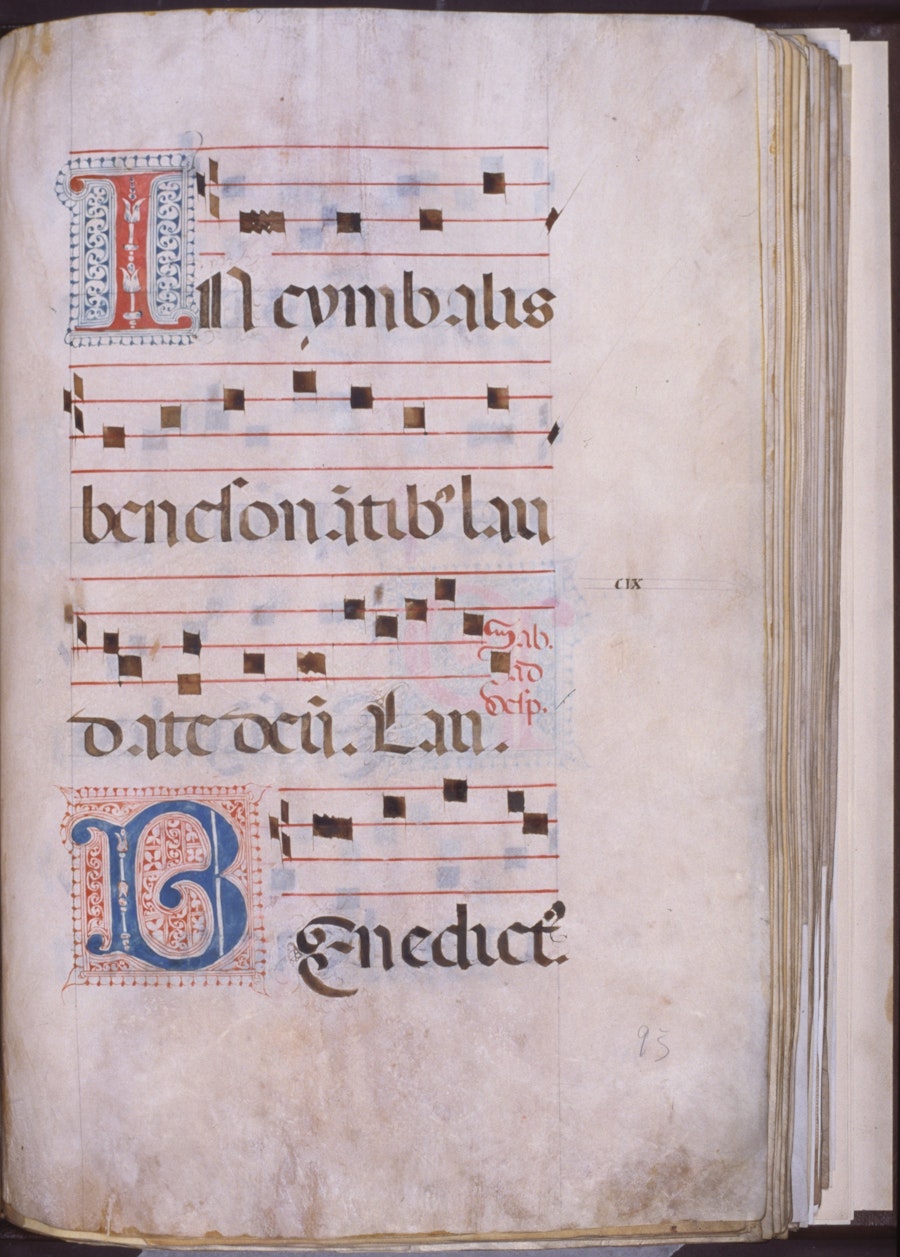 IN cymbalis
benesonātibꝰ lau
CIX
date deū. Lau.
Sab.
ad
Vesp.
BEnedictꝰ.
93